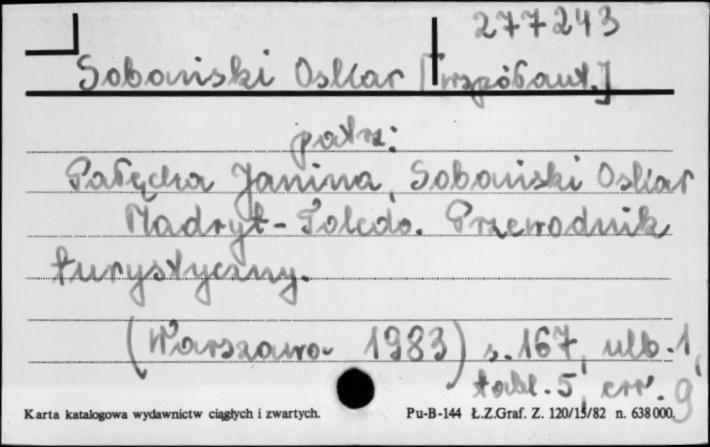 277243
Sobański Oskar [współaut.]
patrz:
Pałęcka Janina, Sobański Oskar
Madryt - Toledo. Przewodnik
turystyczny.
(Warszawa 1983) s. 167, nlb. 1,
tabl. 5, err. 9
Karta katalogowa wydawnictw ciągłych i zwartych. Pu-B-144 Ł.Z.Graf. Z. 120/15/82 n. 638000.